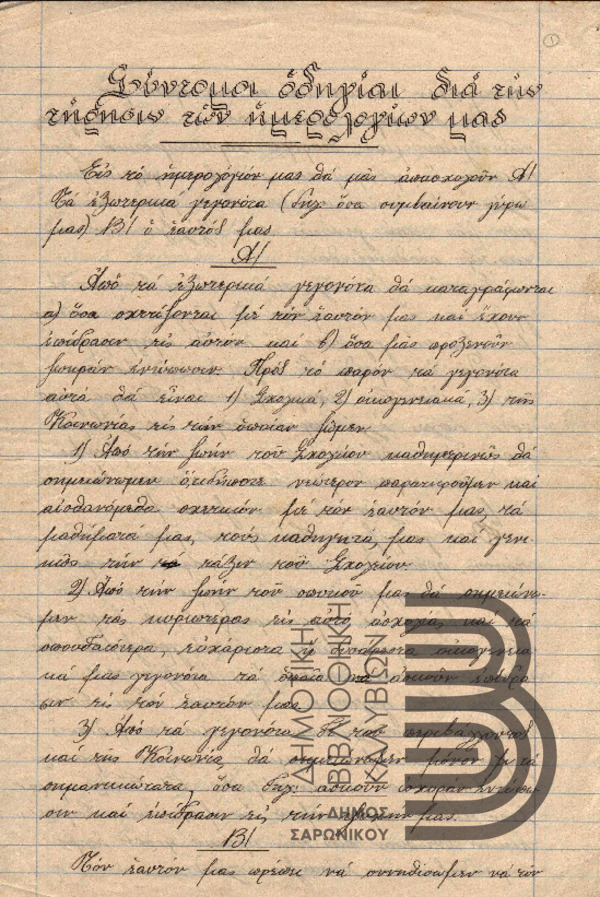 1
Σύντομοι ὁδηγίαι διά τήν
τήρησιν τῶν ἡμερολογίων μας
Εἰς τό ἡμερολόγιόν μας θά μᾶς ἀπασχολοῦν Α!
Τά ἐξωτερικά γεγονότα (δηλ. ὅσα συμβαίνουν γύρω
μας) Β! ὁ ἑαυτός μας
Α!
Ἀπό τά ἐξωτερικά γεγονότα θά καταγράφωνται
α) ὅσα σχετίζονται μέ τόν ἑαυτόν μας καί ἔχουν
ἐπίδρασιν εἰς αὐτόν καί β) ὅσα μᾶς προξενοῦν
ζωηράν ἐντύπωσιν. Πρός τό παρόν τά γεγονότα
αὐτά θά εἶναι 1) Σχολικά, 2) οἰκογενειακά, 3) τῆς
Κοινωνίας εἰς τήν ὁποίαν ζῶμεν
1) Ἀπό τήν ζωήν τοῦ Σχολείου καθημερινῶς θά
σημειώνωμεν ὁτιδήποτε νεώτερον παρατηροῦμεν καί
αἰσθανόμεθα σχετικόν μέ τόν ἑαυτόν μας, τά
μαθήματά μας, τούς καθηγητά μας καί γεν-
κῶς τήν τάξιν τοῦ Σχολείου
2) Ἀπό τήν ζωήν τοῦ σπιτιοῦ μας θά σημειώνω-
μεν τάς κυριωτέρας εἰς αὐτό ἀσχολίας καί τά
σπουδαιότερα, εὐχάριστα ἤ δυσάρεστα οἰκογενεια
κά μας γεγονότα τά ὁποῖα θά ἀσκοῦν ἐπίδρα
σιν εἰς τόν ἑαυτόν μας.
3) Ἀπό τά γεγονότα δέ τοῦ περιβάλλοντος
καί τῆς Κοινωνία, θά σημειώνωμεν μόνον τά
σημαντικώτατα, ὅσα δηλ. ἀσκοῦν ἰσχυράν ἐντύπω
σιν καί ἐπίδρασιν εἰς τήν μας.
Β!
Τόν ἑαυτόν μας πρέπει νά συνηθίσωμεν νά τόν
ΔΗΜΟΤΙΚΗ
ΒΙΒΛΙΟΘΗΚΗ
ΚΑΛΥΒΙΩΝ
ΔΗΜΟΣ
ΣΑΡΩΝΙΚΟΥ